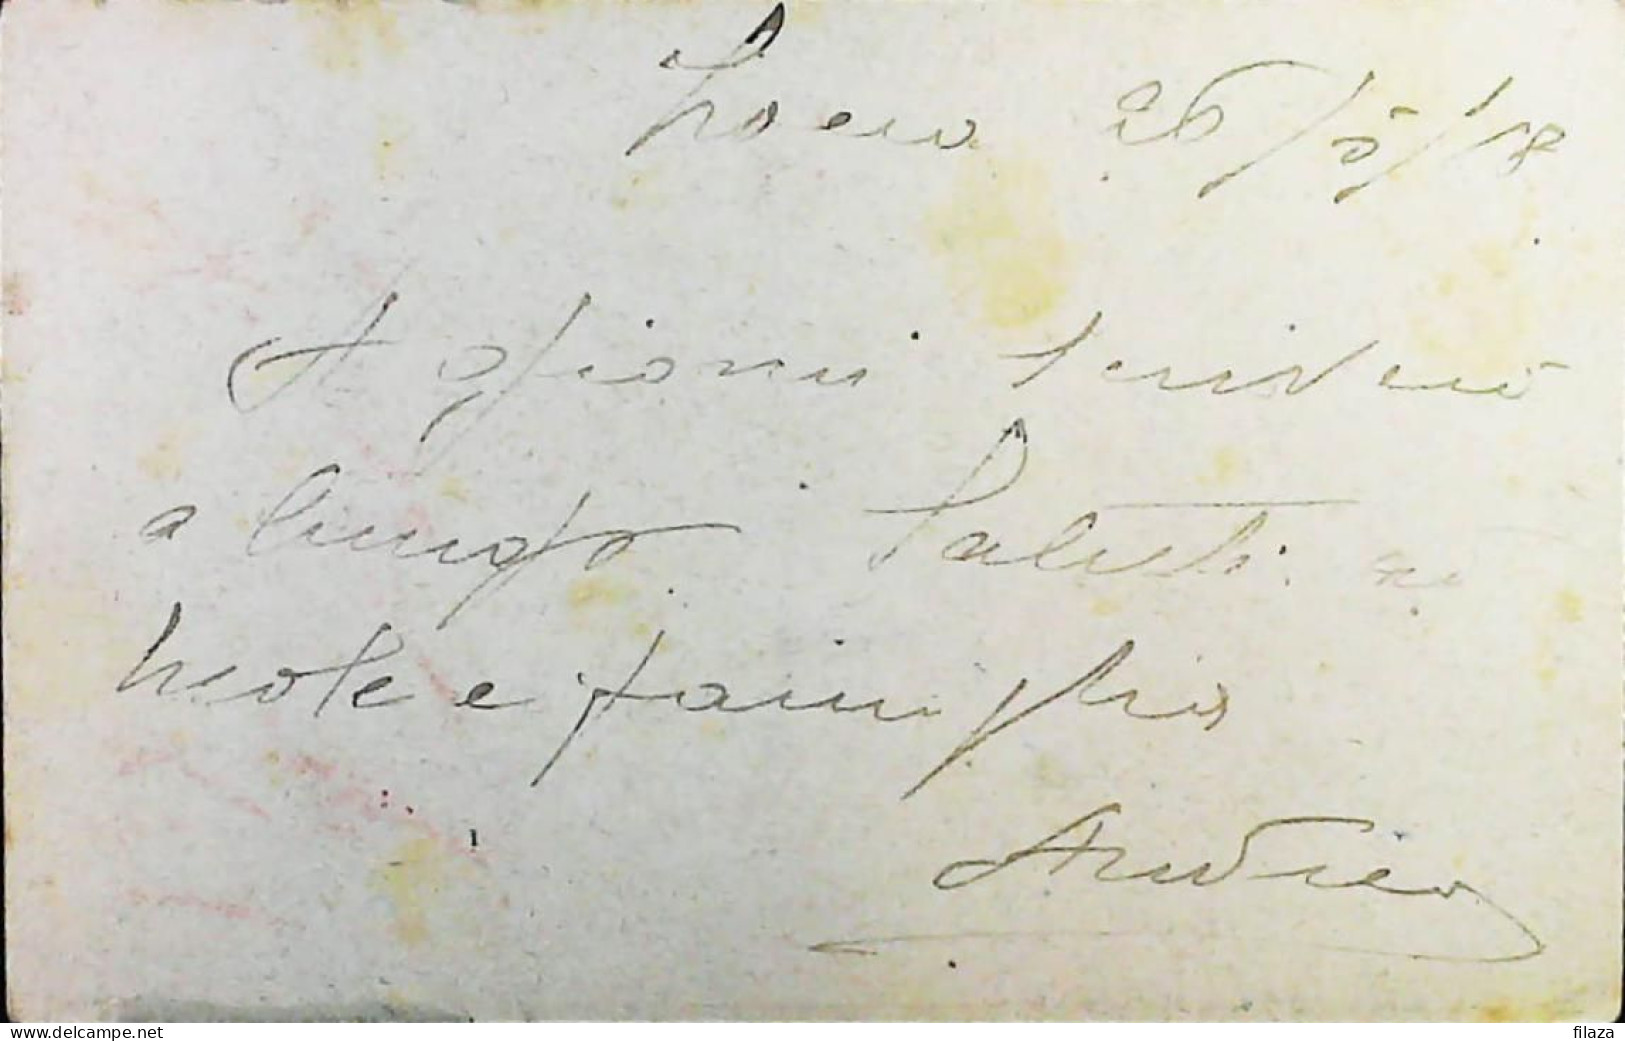 26/5/18
A giorni scriverò
a lungo. Saluti
e famiglia
Andrea
www.delcampe.net
filaza